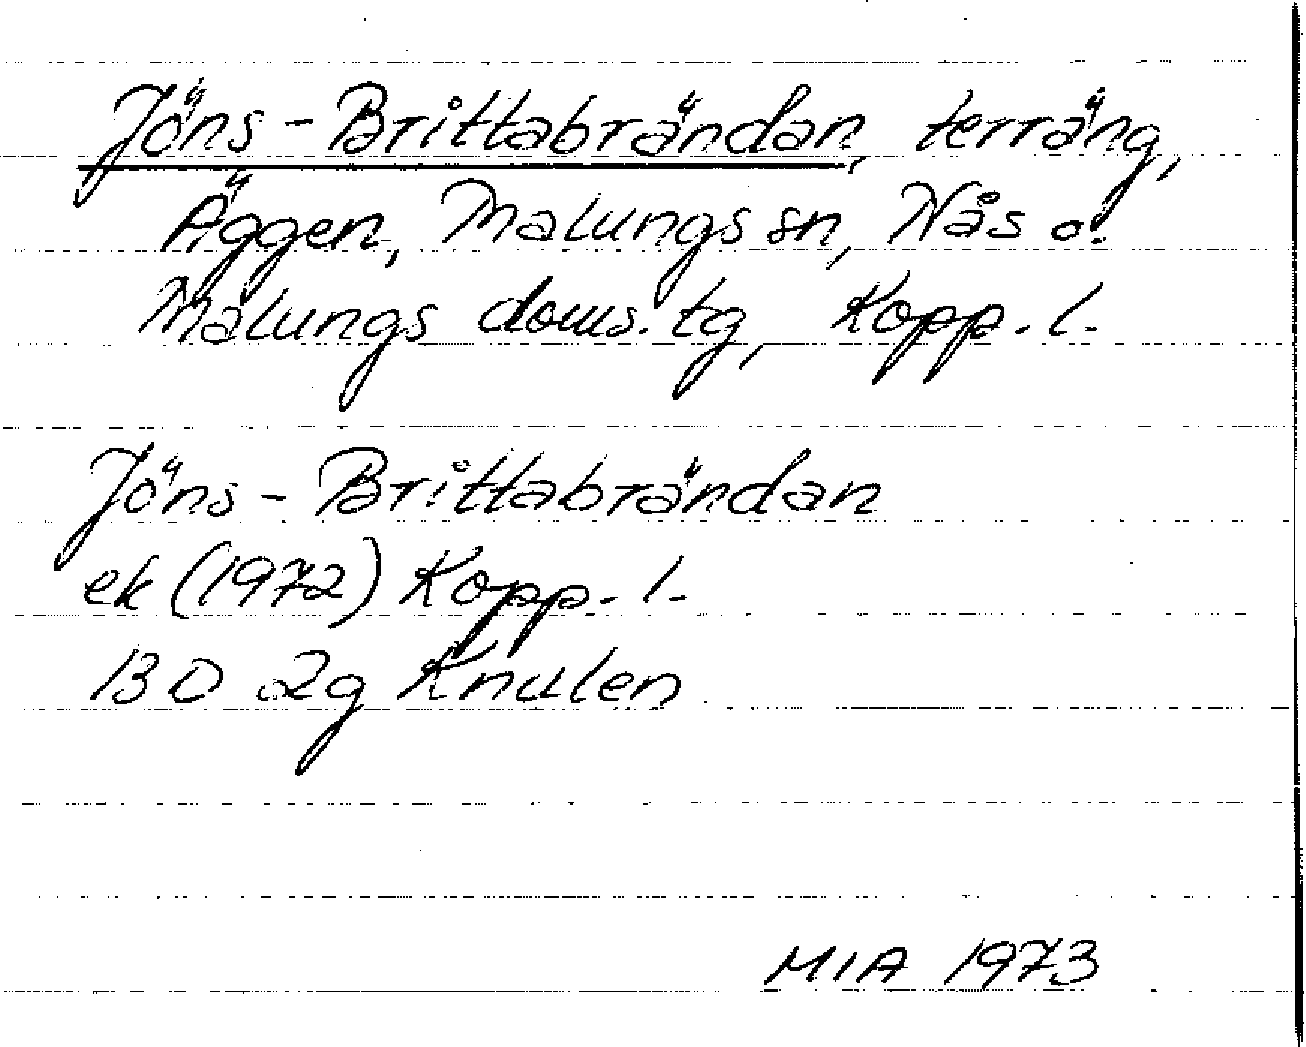 Jöns-Brittabrändan, terräng,
Äggen, Malungs sn, Nås o.
Malungs doms. tg, Kopp. l.
Jöns-Brittabrändan
ek (1972) Kopp. l.
13 D 2g Knulen
MIA 1973